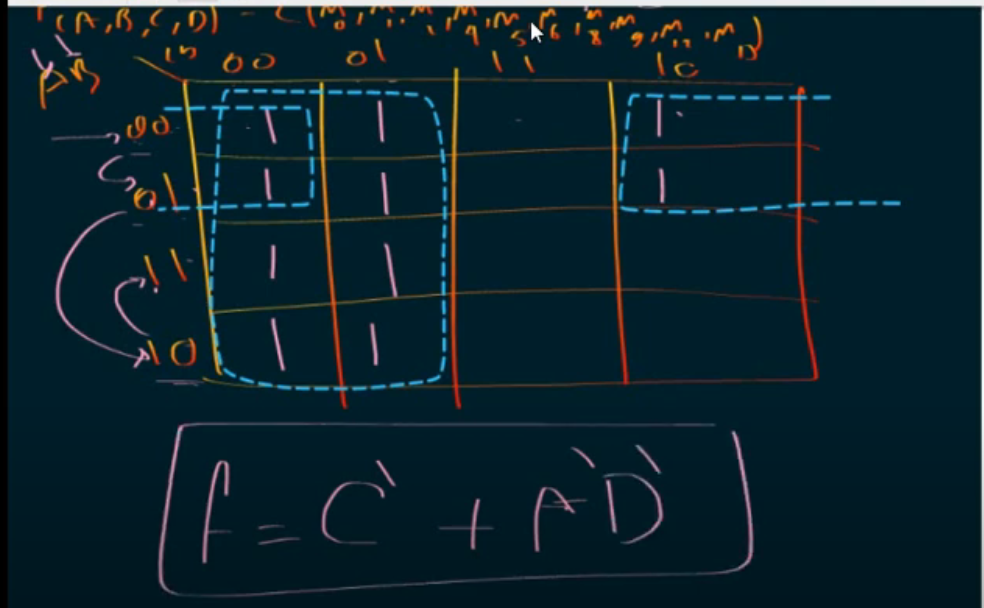 (A,B,C,D) = Σ(m0, m, m, m4, m5, m6, m8, m9, m12, m13)
AB 00 01 11 10
00 1 1 1
01 1 1 1
11 1 1
10 1 1
f = C' + A'D'